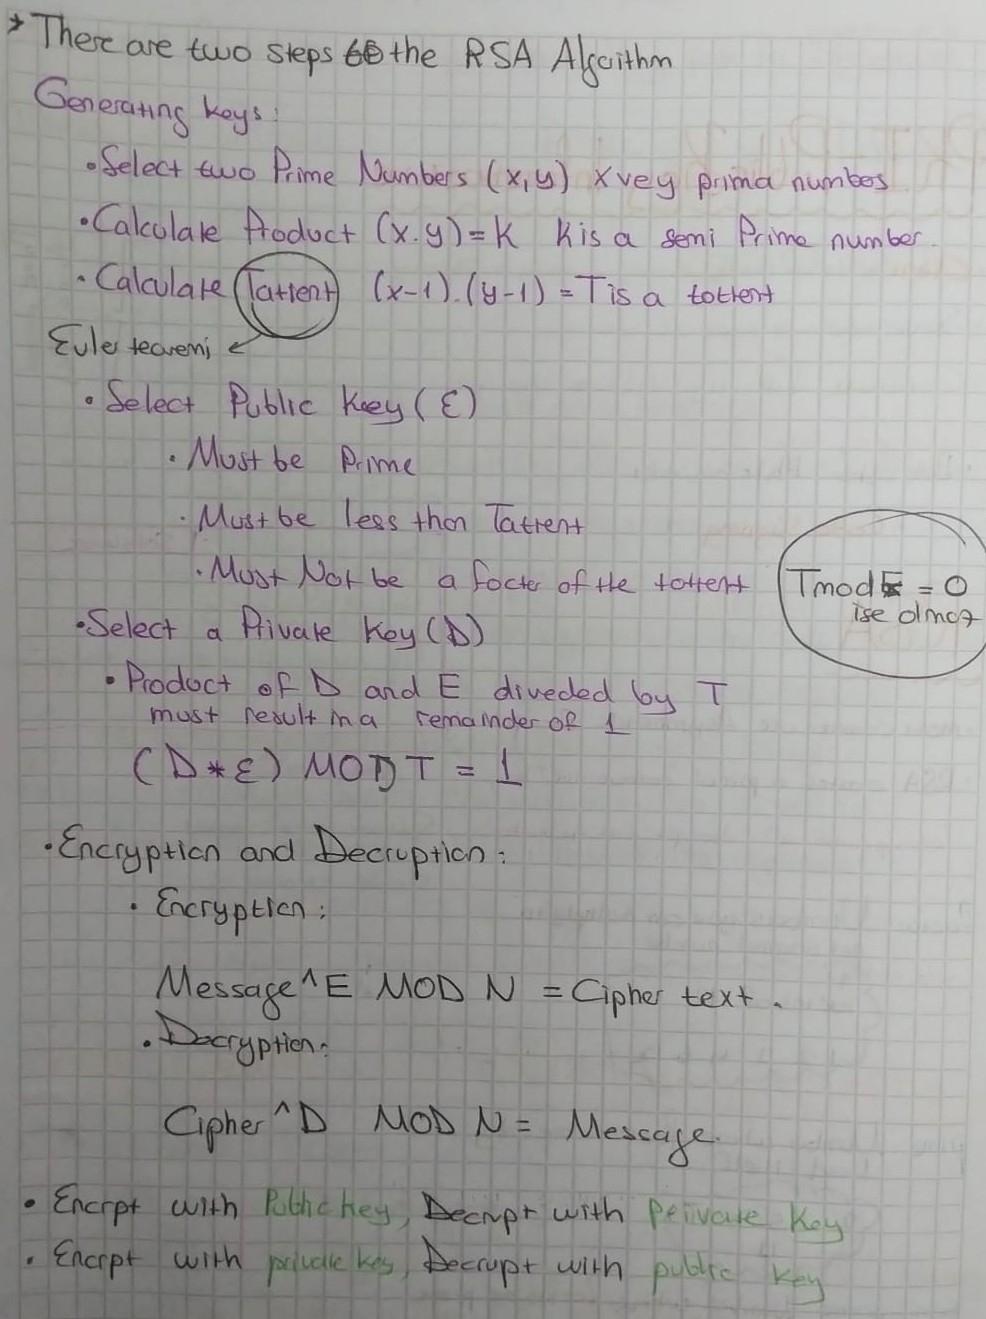 * There are two steps to the RSA Algorithm
Generating keys:
• Select two Prime Numbers (x,y) x vey prima numbos
• Calculate Product (x.y)=K K is a semi Prime number.
• Calculate Tatient (x-1).(y-1) = T is a totient
Euler teoremi
• Select Public Key (E)
• Must be Prime
• Must be less than Tatient
• Must Not be a factor of the totient
T mod E = 0
ise olmaz
• Select a Private Key (D)
• Product of D and E diveded by T
must result in a remainder of 1
(D*E) MOD T = 1
• Encryption and Decruption:
• Encryption:
Message^E MOD N = Cipher text.
• Decryption:
Cipher^D MOD N = Message.
• Encrpt with Public key, Decrypt with Private Key
• Encrpt with private key, Decrupt with public key